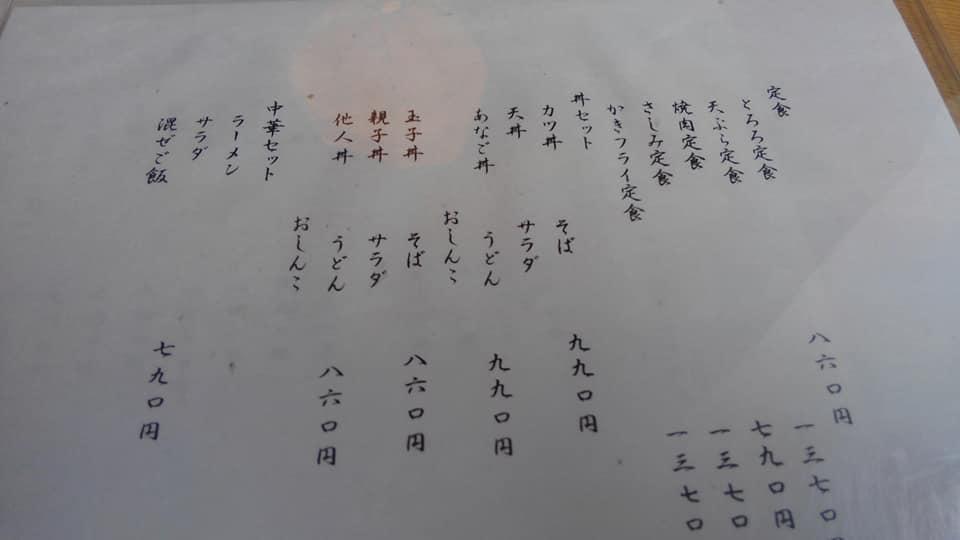 定食
とろろ定食 八六〇円
天ぷら定食 一三七〇円
焼肉定食 七九〇円
さしみ定食 一三七〇
かきフライ定食 一三七〇
丼セット
カツ丼 そば 九九〇円
天丼 サラダ
あなご丼 うどん 九九〇円
おしんこ
玉子丼 そば 八六〇円
親子丼 サラダ
他人丼 うどん 八六〇円
おしんこ
中華セット
ラーメン
サラダ
混ぜご飯 七九〇円